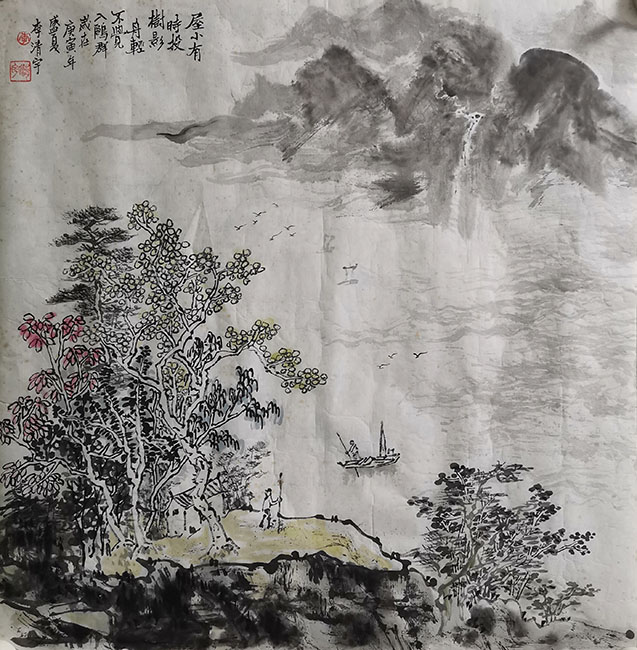 屋小有
時投
樹影
舟輕
不見
入鷗群
歲在
庚寅年
盛夏
李清宇